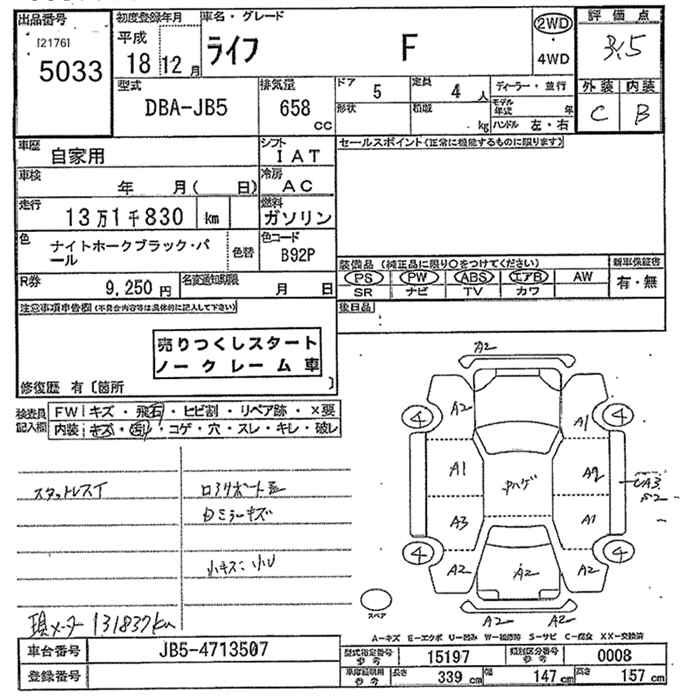 出品番号
[2176]
5033
初度登録年月
平成
18 12 月
車名・グレード
ライフ F
2WD
4WD
評価点
3.5
外装 内装
C B
型式
DBA-JB5
排気量
658
cc
ドア 5
定員 4 人
形状
積載 kg
ディーラー・並行
モデル年式 年
ハンドル 左・右
車歴
自家用
シフト
IAT
車検
年 月( 日)
冷房
AC
走行
13万1千830 km
燃料
ガソリン
色
ナイトホークブラック・パール
色替
色コード
B92P
R券
9,250円
名変通知期限
月 日
セールスポイント(正常に機能するものに限ります)
装備品(純正品に限り○をつけてください)
新車保証書
PS PW ABS エアB AW
有・無
SR ナビ TV カワ
後日品
注意事項申告欄(不具合内容等は具体的に記入して下さい)
売りつくしスタート
ノークレーム車
修復歴 有〔箇所 〕
検査員記入欄
FW キズ・飛石・ヒビ割・リペア跡・×要
内装 キズ・汚・コゲ・穴・スレ・キレ・破レ
スタットレスT
小キズ
現メーター 131837km
A2
A2 A1
4 4
A1
A3 A1
4 4
A2 A2 A2
A2 A2
スペア
A-キズ E-エクボ U-凹み W-補修跡 S-サビ C-腐食 XX-交換済
車台番号
JB5-4713507
型式指定番号
参考
15197
類別区分番号
参考
0008
登録番号
車庫証明用
参考
長さ 339 cm
幅 147 cm
高さ 157 cm